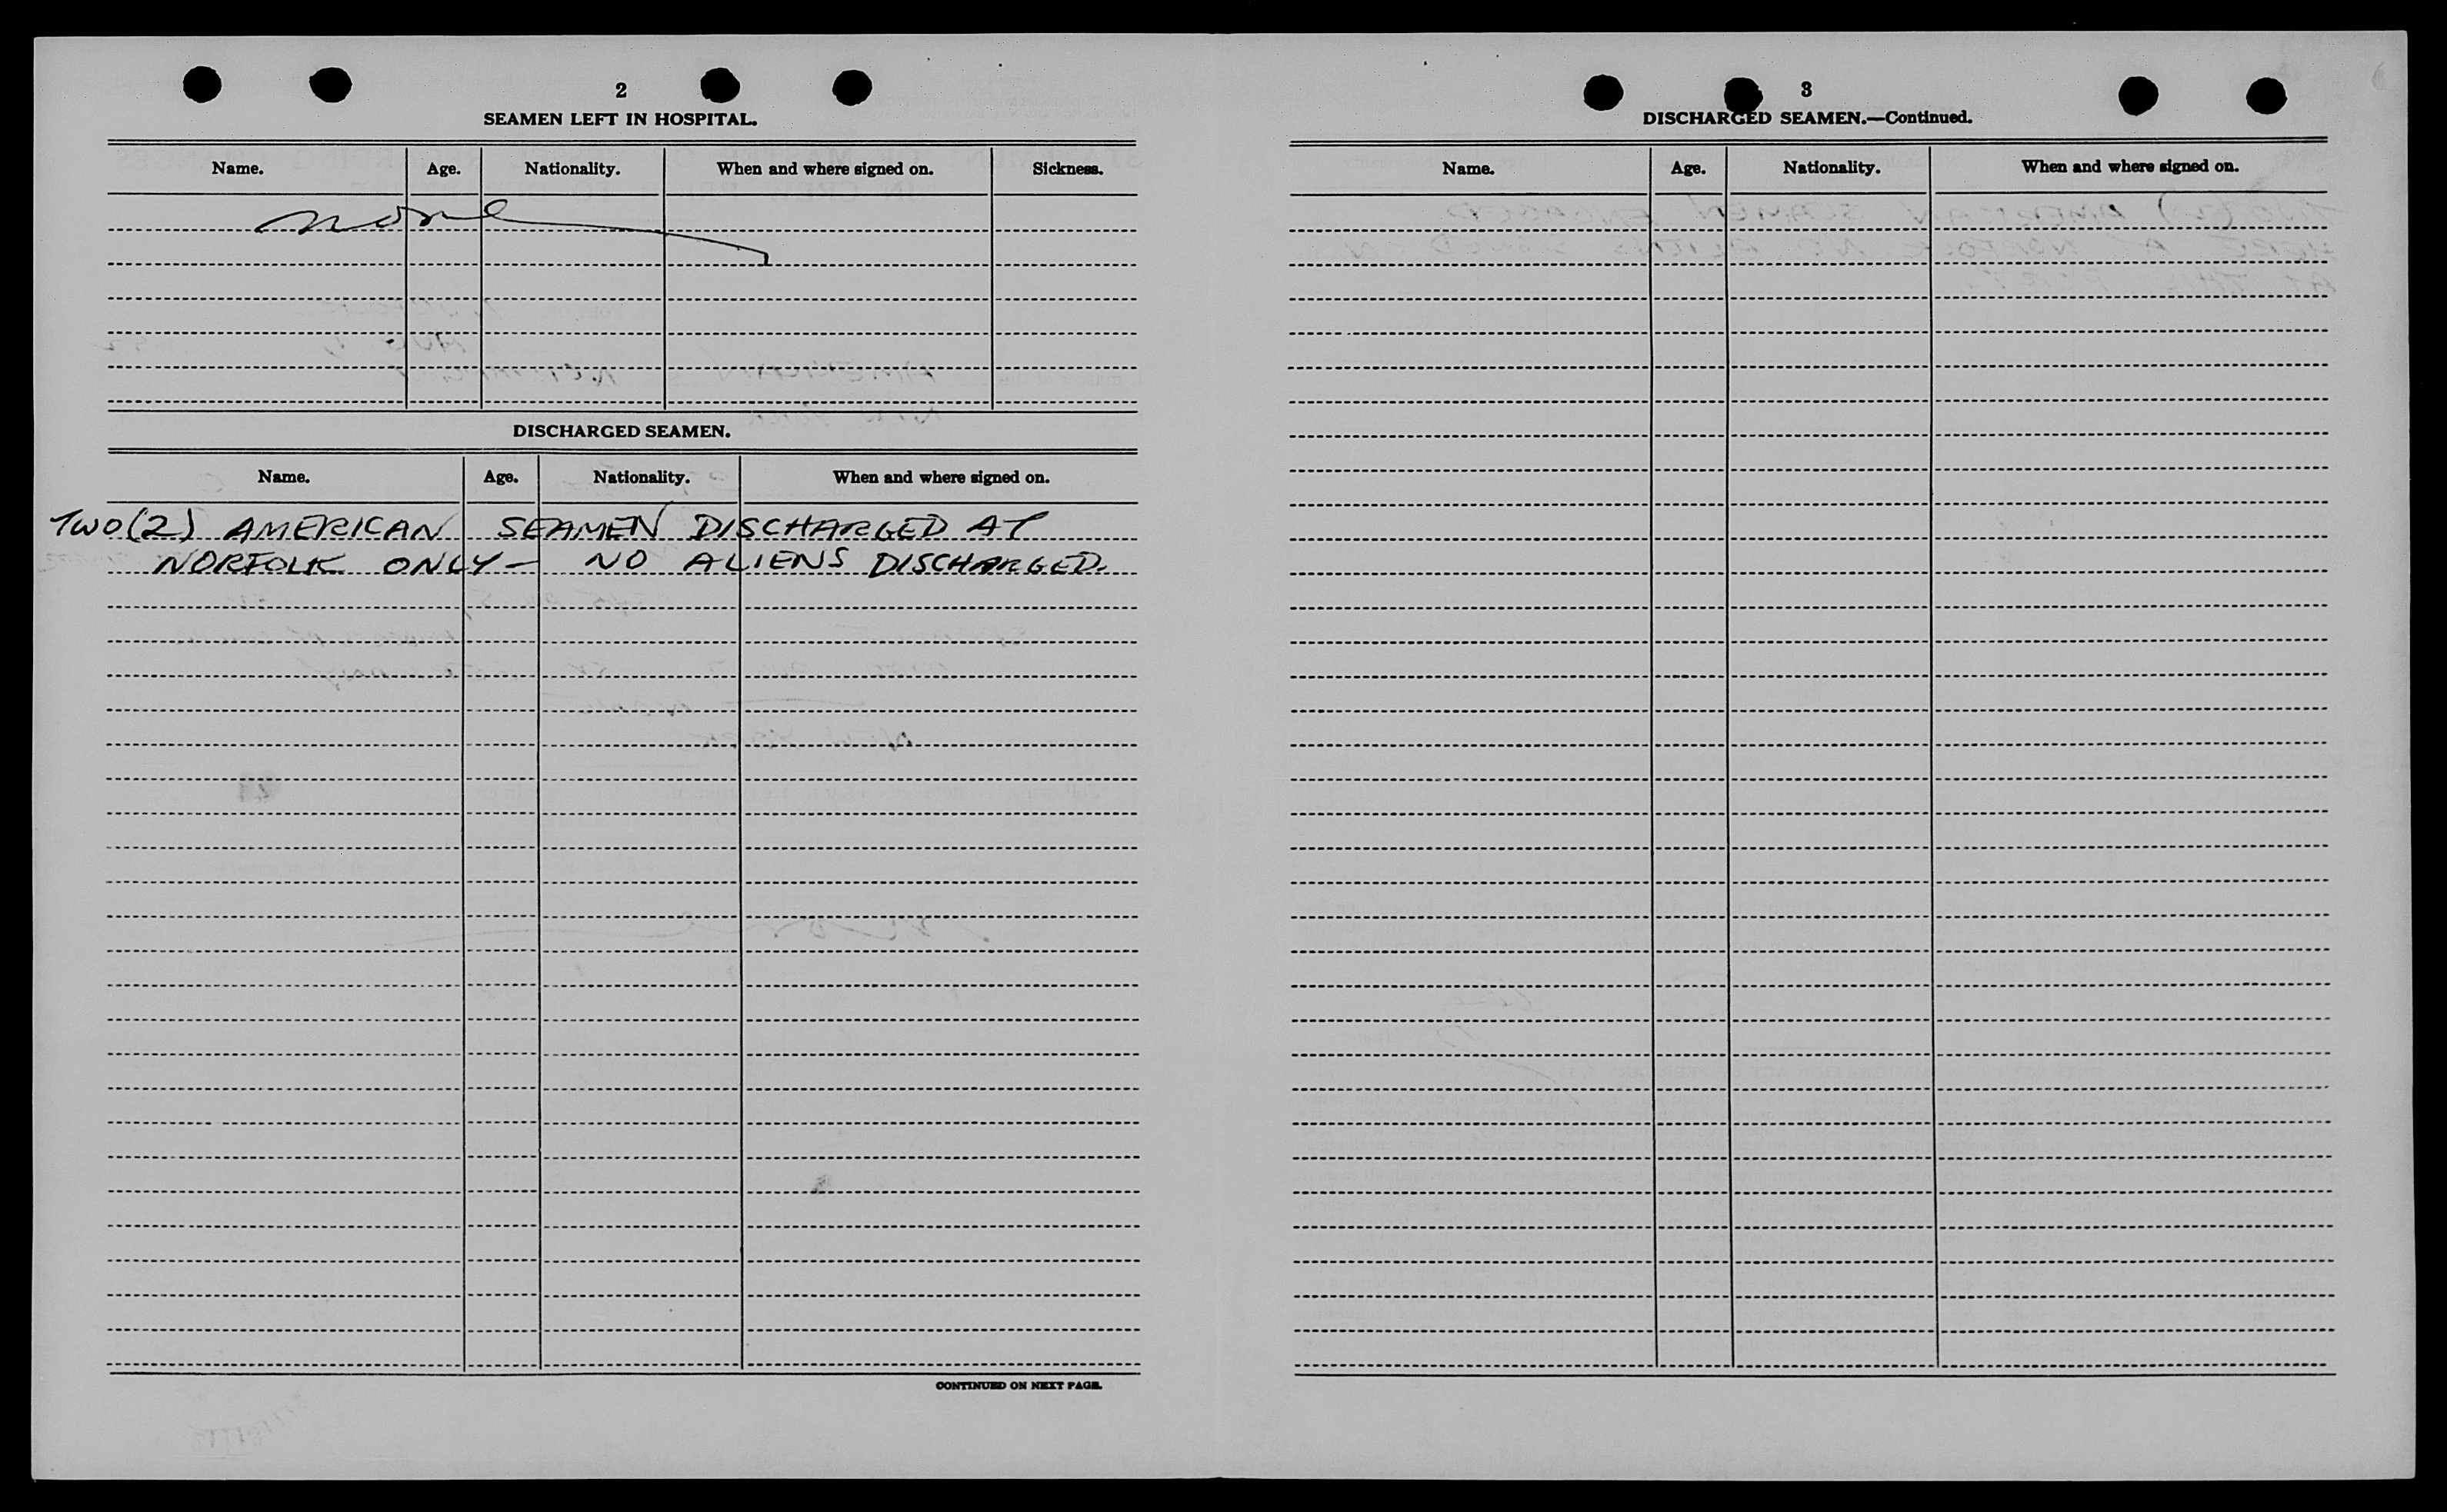 2
SEAMEN LEFT IN HOSPITAL.
Name. Age. Nationality. When and where signed on. Sickness.
None
DISCHARGED SEAMEN.
Name. Age. Nationality. When and where signed on.
TWO (2) AMERICAN SEAMEN DISCHARGED AT
NORFOLK ONLY - NO ALIENS DISCHARGED.
CONTINUED ON NEXT PAGE.
3
DISCHARGED SEAMEN.—Continued.
Name. Age. Nationality. When and where signed on.